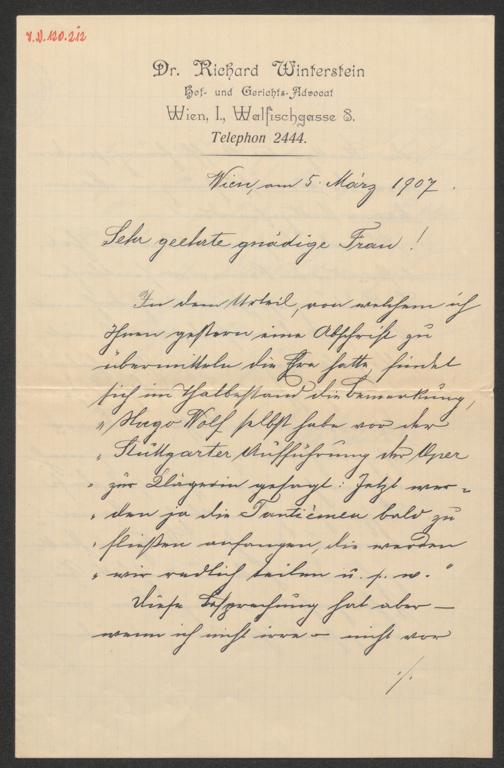 I.N. 120.212
Dr. Richard Winterstein
Hof- und Gerichts-Advocat
Wien, I., Walfischgasse 8.
Telephon 2444.
Wien, am 5. März 1907.
Sehr geehrte gnädige Frau!
In dem Urteil, von welchem ich
Ihnen gestern eine Abschrift zu
übermitteln die Ehre hatte, findet
sich im Thatbestand die Bemerkung,
„Hugo Wolf selbst habe vor der
„Stuttgarter Aufführung der Oper
„zur Klägerin gesagt: Jetzt wer=
„den ja die Tantièmen bald zu
„fließen anfangen, die werden
„wir redlich teilen u. s. w."
Diese Besprechung hat aber –
wenn ich nicht irre – nicht vor
./.